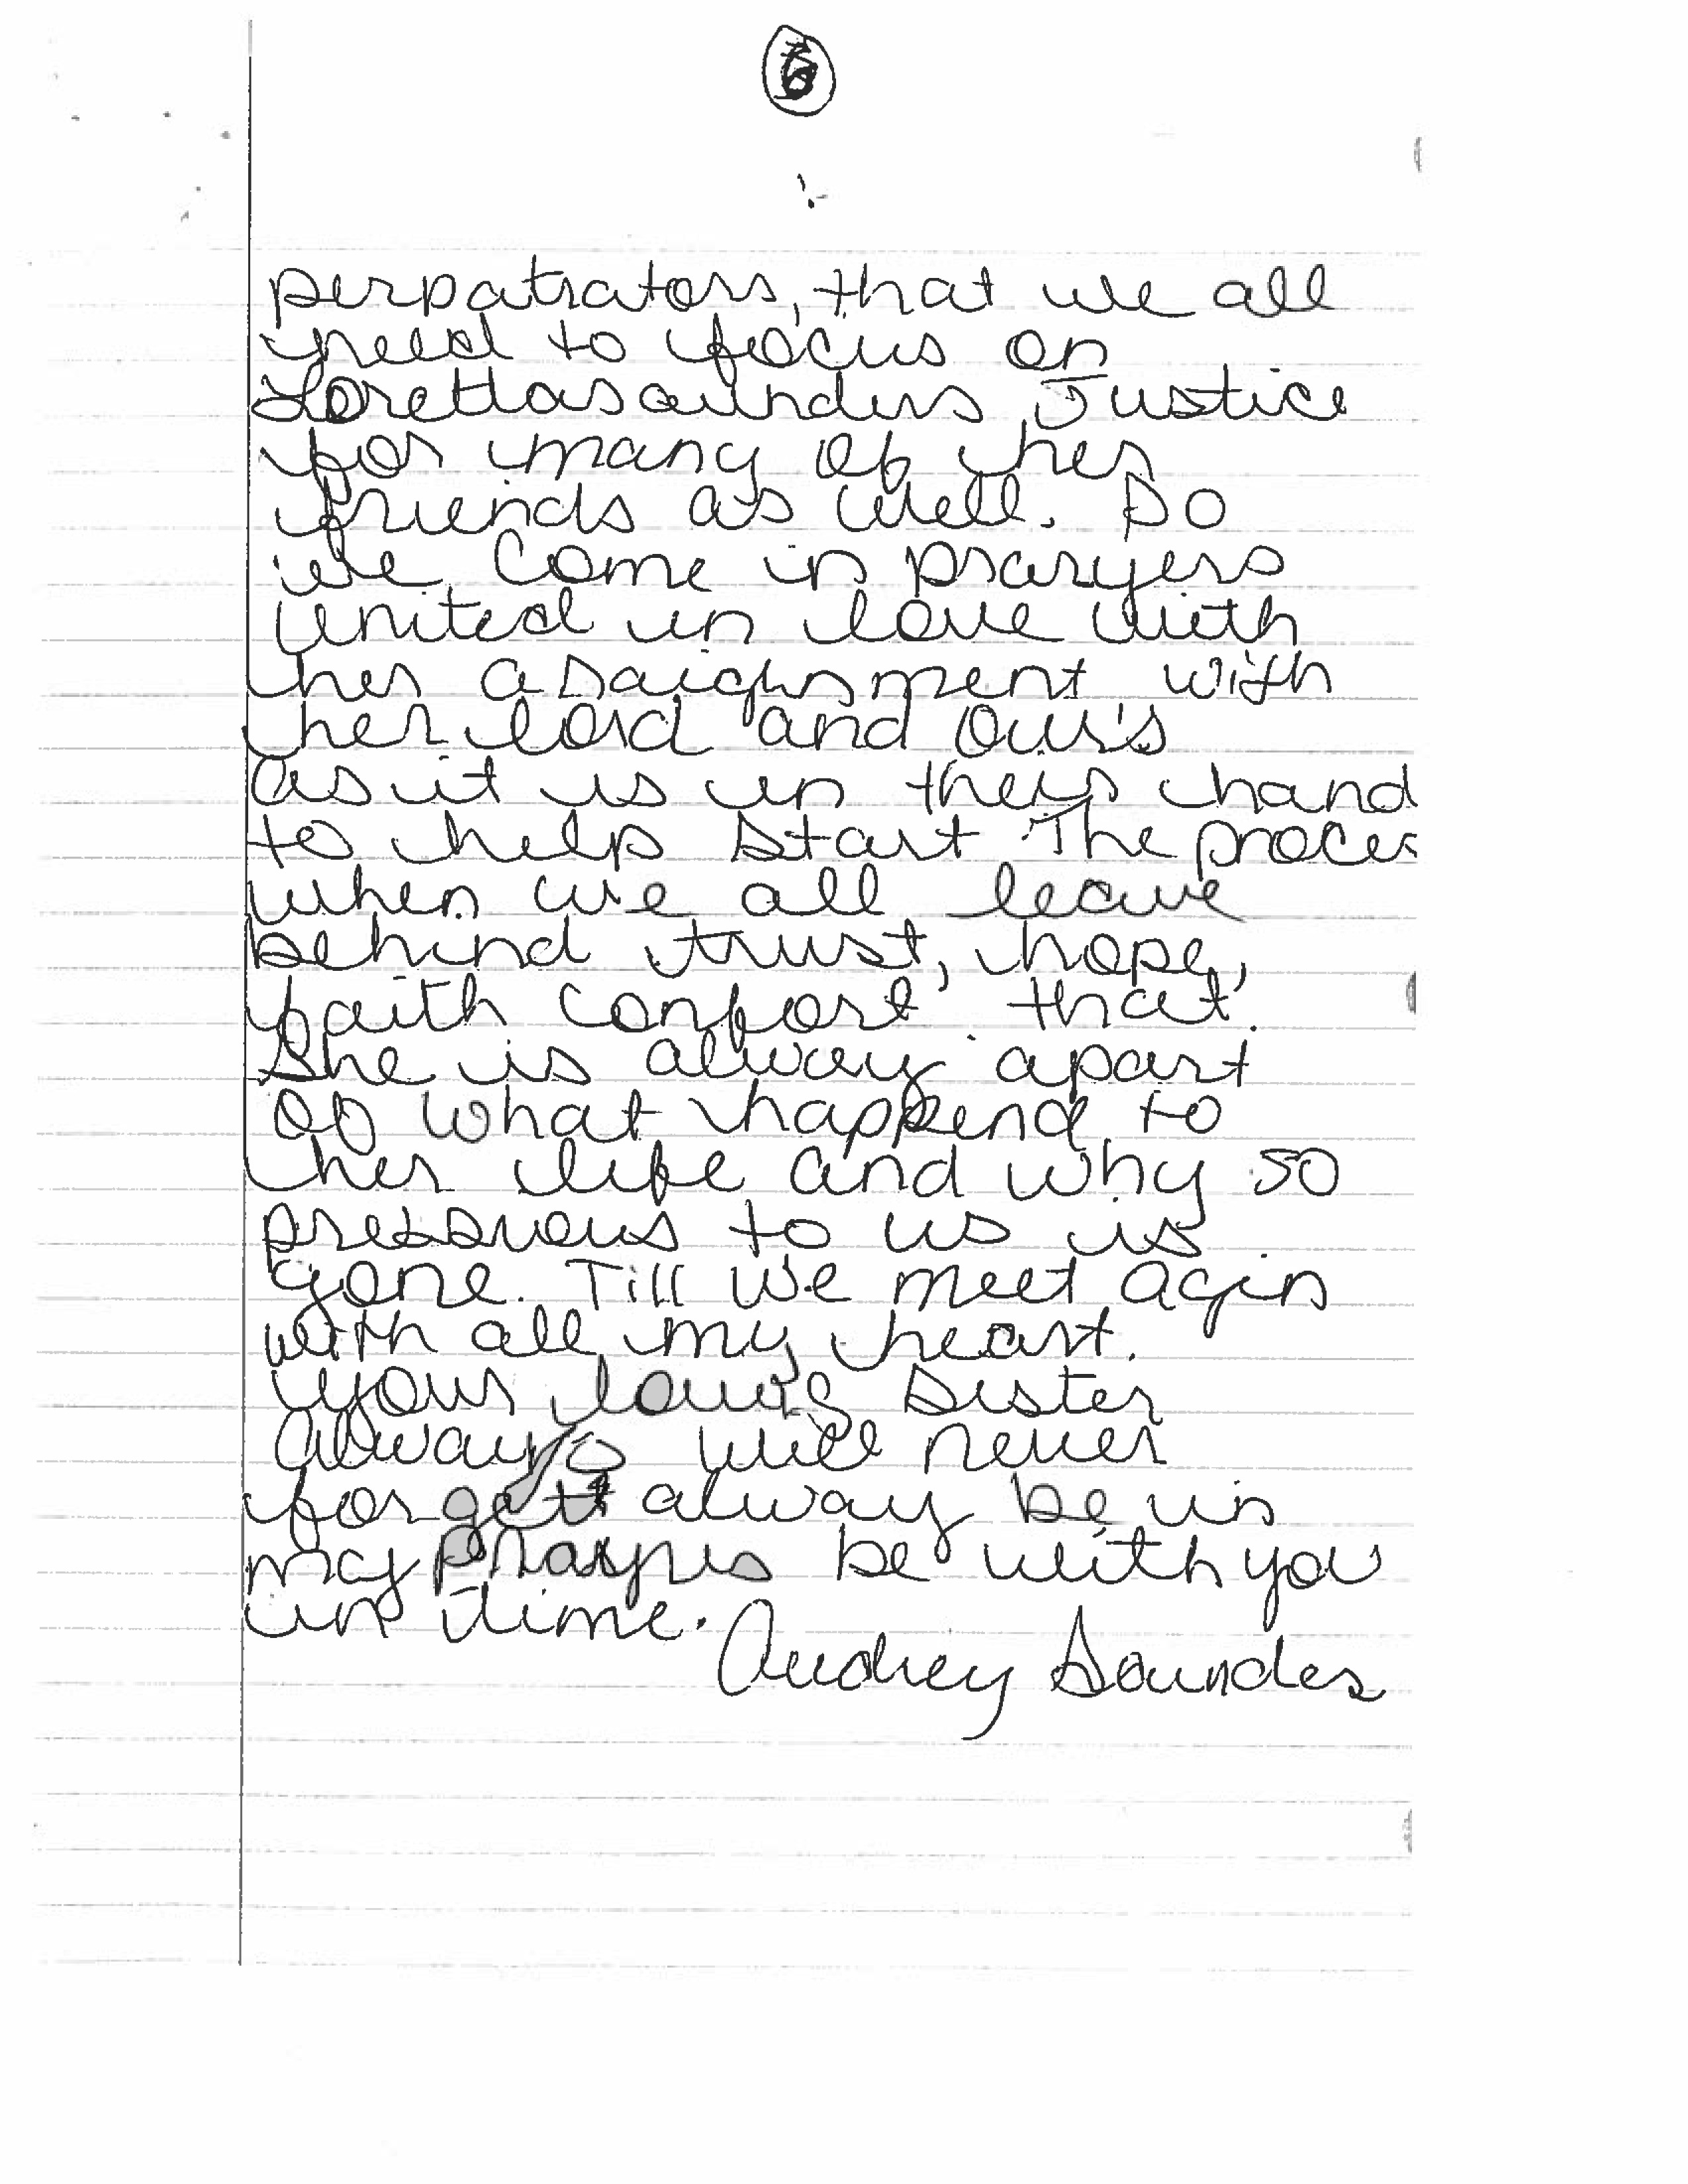 6
perpatrators, that we all
need to focus on
Lorettasaunders Justice
for many of her
friends as well. So
we come in prayers
united in love with
her asaighnment with
her lord and our's
as it is in their hand
to help start The proces
when we all leave
behind trust, hope,
faith confort that
She is alway apart
of what happend to
her life and why so
pressuous to us is
gone. Till we meet agin
with all my heart.
your loving sister
always will never
forgett alway be in
my prayers be with you
in time.
Audrey Saunders